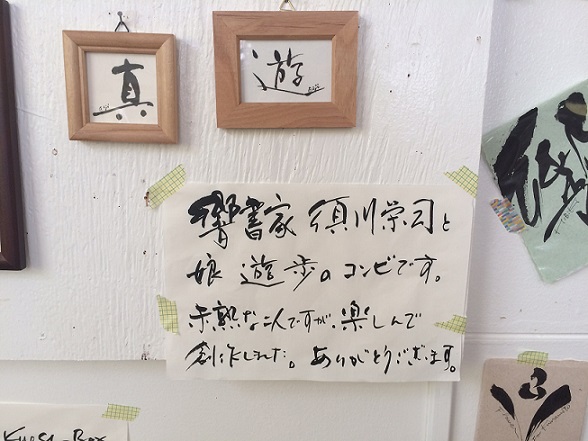 真
遊
響書家 須川栄司と
娘 遊歩のコンビです。
未熟な二人ですが、楽しんで
創作しました。ありがとうございます。